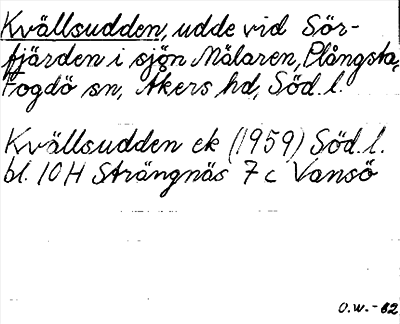 Kvällsudden, udde vid Sör-
fjärden i sjön Mälaren, Plångsta,
Fogdö sn, Åkers hd, Söd. l.
Kvällsudden ek (1959) Söd. l.
bl. 10H Strängnäs 7c Vansö
O.W. - 82